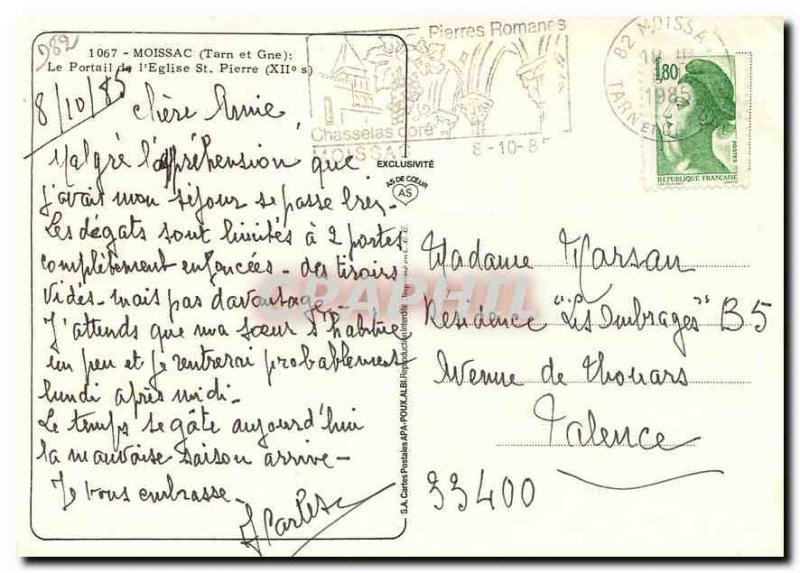 D82
1067 - MOISSAC (Tarn et Gne):
Le Portail de l'Eglise St. Pierre (XIIe s)
8/10/85
Chère Amie,
Malgré l'appréhension que
j'avais mon séjour se passe bien -
Les dégats sont limités à 2 portes
complètement enfoncées - des tiroirs
vidés - mais pas davantage -
J'attends que ma sœur s'habitue
un peu et je rentrerai probablement
lundi après midi -
Le temps se gâte aujourd'hui
la mauvaise saison arrive -
Je vous embrasse -
EXCLUSIVITÉ
AS DE CŒUR
AS
S.A. Cartes Postales APA-POUX, ALBI. Reproduction interdite
Pierres Romanes
Chasselas doré
MOISSAC
8-10-85
82 MOISSAC
1985
TARN ET
1,80
POSTES
REPUBLIQUE FRANÇAISE
Madame Marsan
Résidence "Les Ombrages" B5
Avenue de Thouars
Talence
33400
CPAPHIL